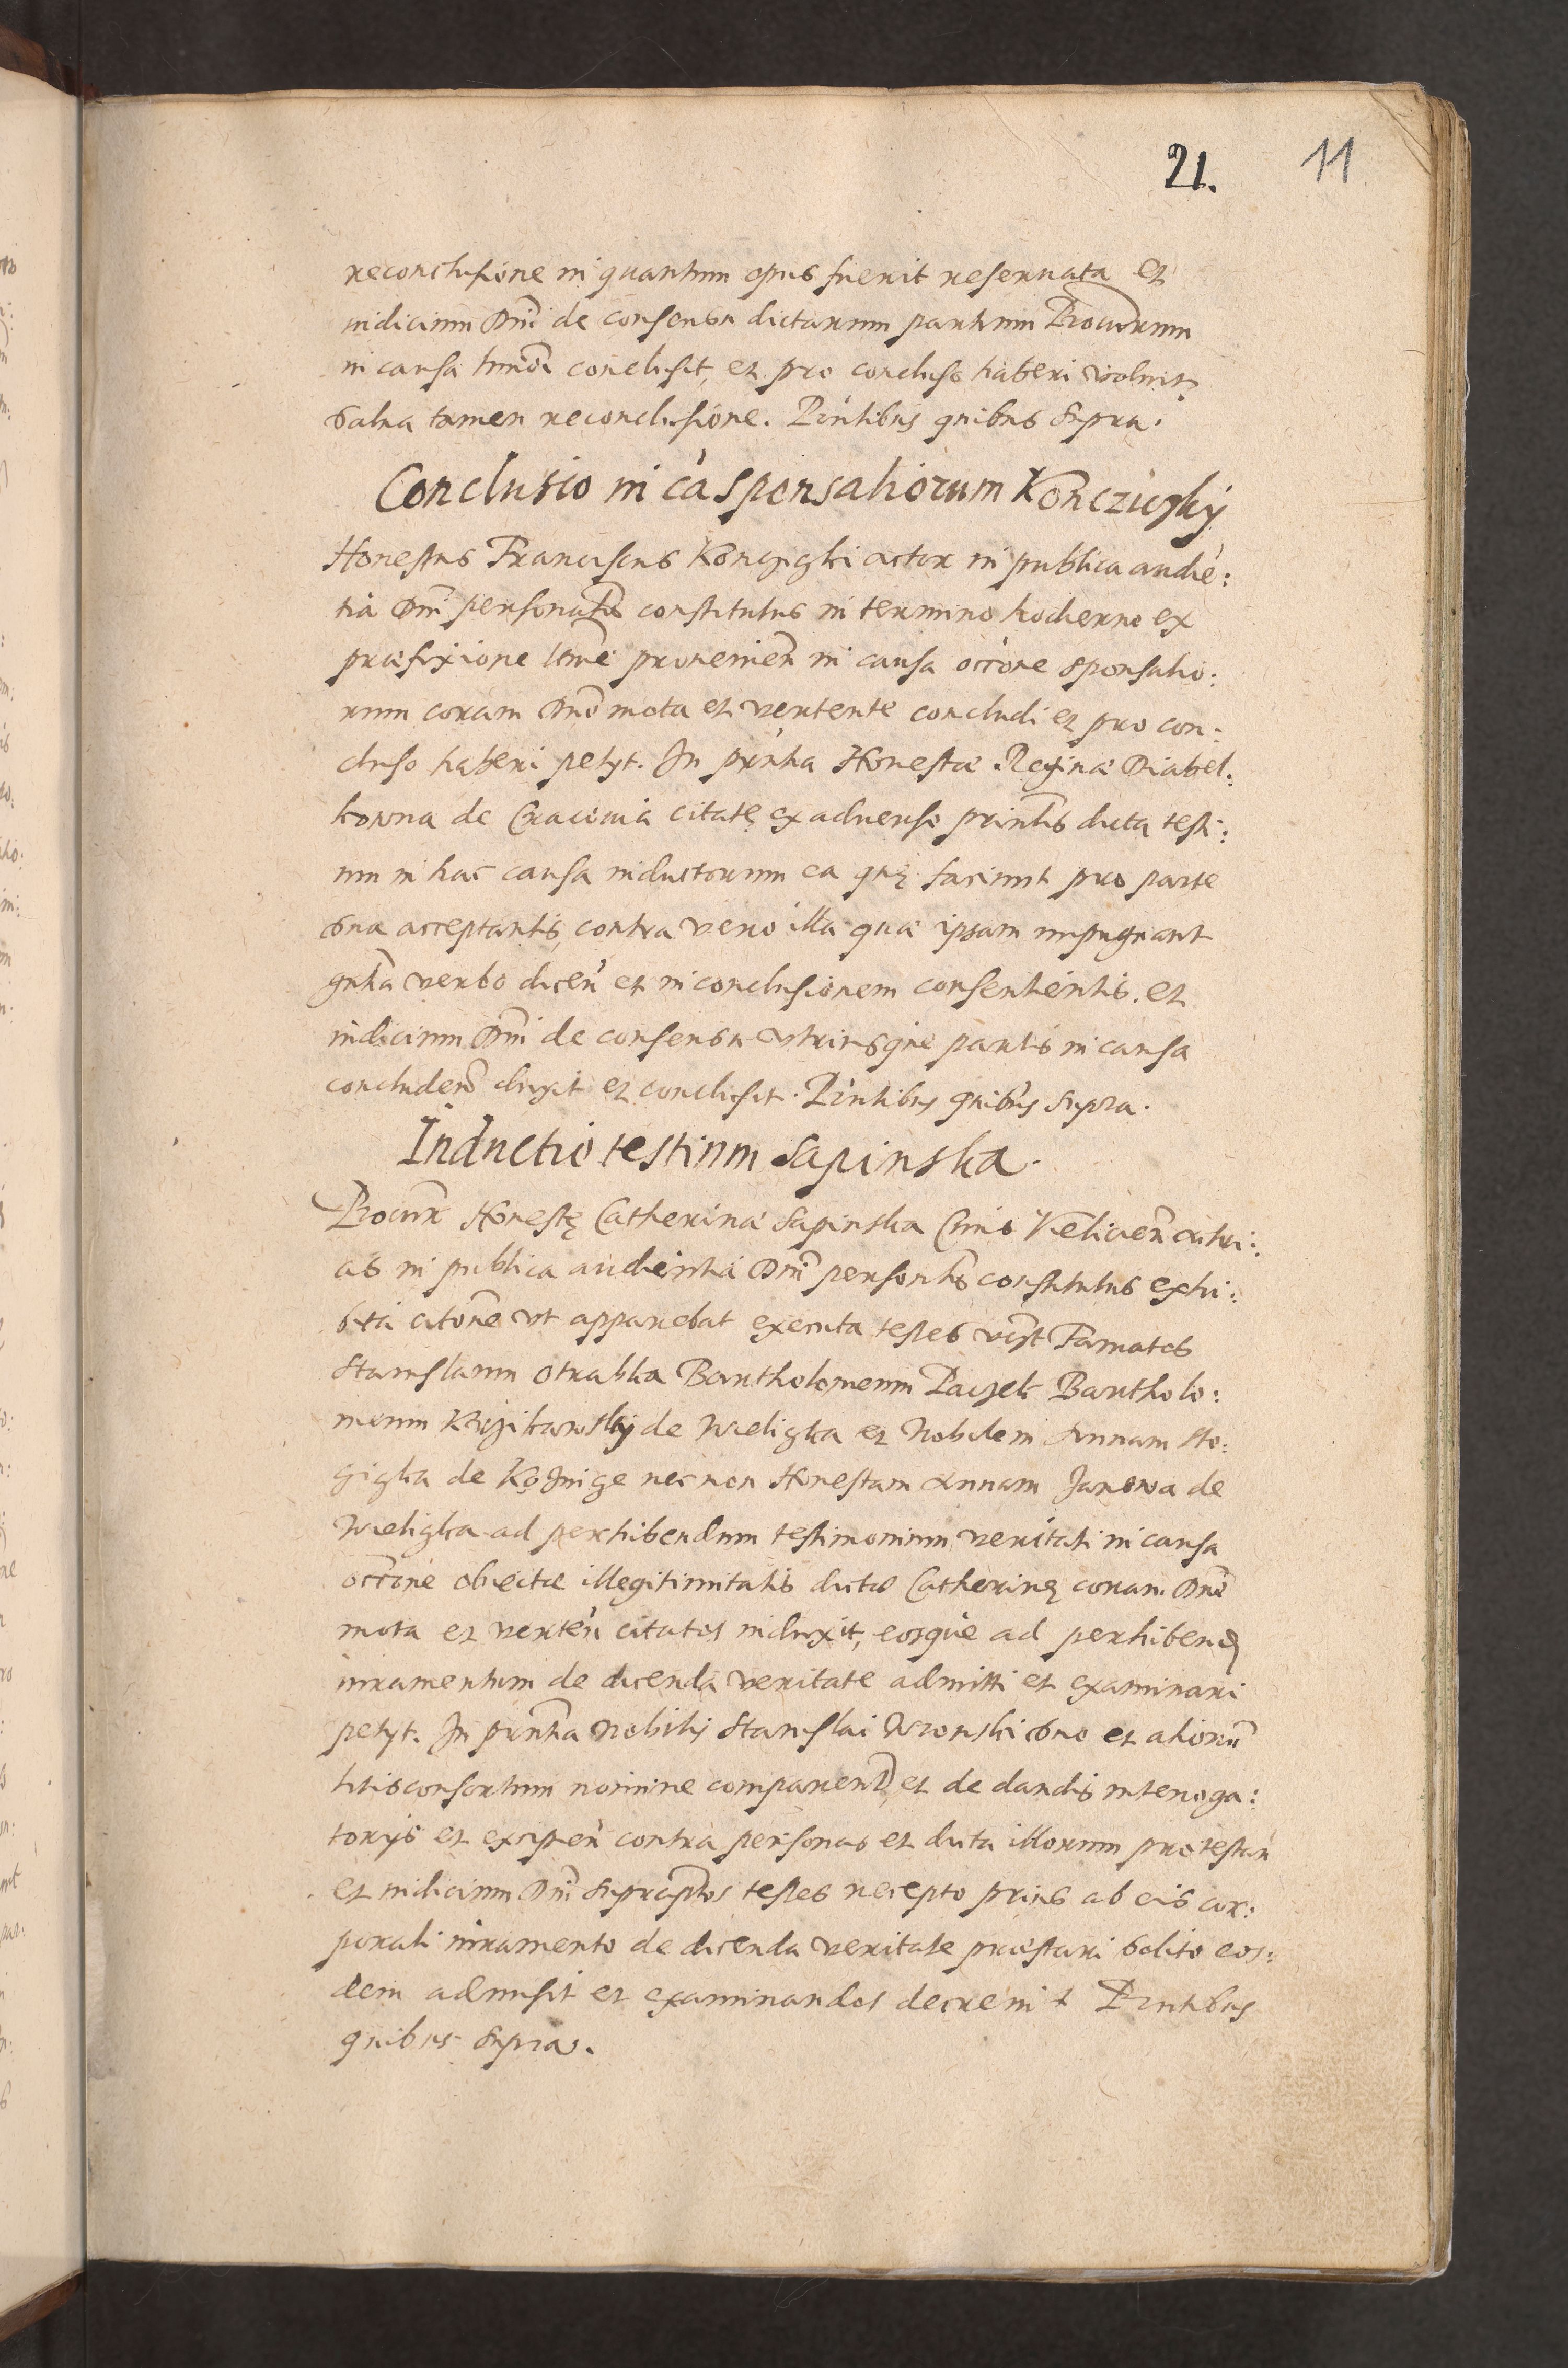 21. 11
reconclusione in quantum opus fuerit reseruata et
iudicium Dni de consensu dictarum partium Procurum
in causa hmoi conclusit, et pro concluso haberi voluit,
salua tamen reconclusione. Pntibus quibus supra.
Conclusio in ca sponsaliorum Koncziczkÿ
Honestus Franciscus Koncziczki actor in publica audie:
tia Dni personalis constitutus in termino hodierno ex
præfixione ltme prouenien in causa occone sponsalio:
rum coram Dno mota et vertente concludi et pro con:
cluso haberi petyt. In pñtia Honestæ Reginæ Diabel:
kowna de Cracouia citatę ex aduerso principalis dicta testi:
um in hac causa inductorum ea quę faciunt pro parte
sua acceptantis, contra vero illa quæ ipsam impugnant
gnlia verbo dicen et in conclusionem consentientis. et
iudicium Dni de consensu vtriusque partis in causa
concluden duxit et conclusit. Pntibus quibus supra.
Inductio testium Sapinska.
Procur Honestę Catherinæ Sapinska Ciuis Velicien actri:
cis in publica audientia Dni personalis constitutus exhi:
bita citone vt apparebat executa testes vizt Famatos
Stanislaum Otrabka Bartholomeum Paczek Bartholo:
meum Krzikawskÿ de Wieliczka et Nobilem Annam Sto:
de necnon Honestam Annam Janowa de
Wieliczka ad perhibendum testimonium veritati in causa
occone obiectæ illegitimitatis dictæ Catherinę coram Dno
mota et verten citatos induxit, eosque ad perhibend
iuramentum de dicenda veritate admitti et examinari
petyt. In pñtia Nobilis Stanislai Wronski suo et aliorum
litisconsortium nomine comparen, et de dandis interroga:
torijs et excipien contra personas et dicta illorum protestan
et iudicium Dni supraptos testes recepto prius ab eis cor:
porali iuramento de dicenda veritate præstari solito eos:
dem admisit et examinandos decreuit Pntibus
quibus supra.